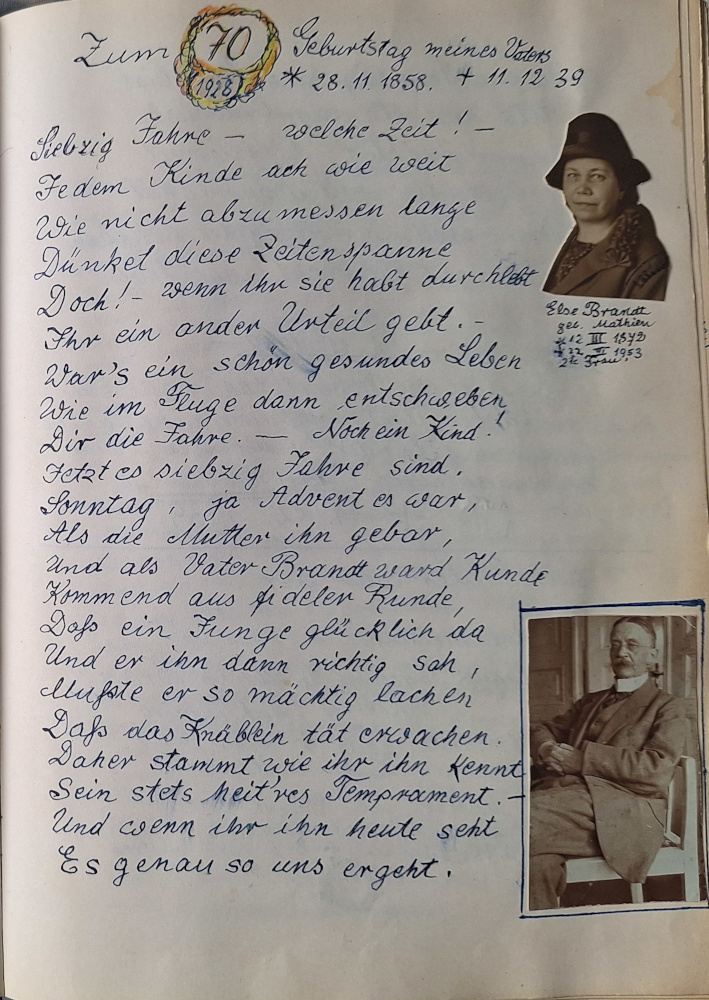 Zum 70 Geburtstag meines Vaters
1928 * 28.11.1858. + 11.12 39
Siebzig Jahre — welche Zeit! —
Jedem Kinde ach wie weit
Wie nicht abzumessen lange
Dünket diese Zeitenspanne
Doch! – wenn ihr sie habt durchlebt
Ihr ein ander Urteil gebt. –
War's ein schön gesundes Leben
Wie im Fluge dann entschweben
Dir die Jahre. — Noch ein Kind!
Jetzt es siebzig Jahre sind.
Sonntag, ja Advent es war,
Als die Mutter ihn gebar,
Und als Vater Brandt ward Kunde
Kommend aus fideler Runde,
Daß ein Junge glücklich da
Und er ihn dann richtig sah,
Mußte er so mächtig lachen
Daß das Knäblein tät erwachen.
Daher stammt wie ihr ihn kennt
Sein stets heit'res Temprament. –
Und wenn ihr ihn heute seht
Es genau so uns ergeht.
Else Brandt
geb. Mathieu
* 12 III 1872
+ 22 VI 1953
2te Frau.